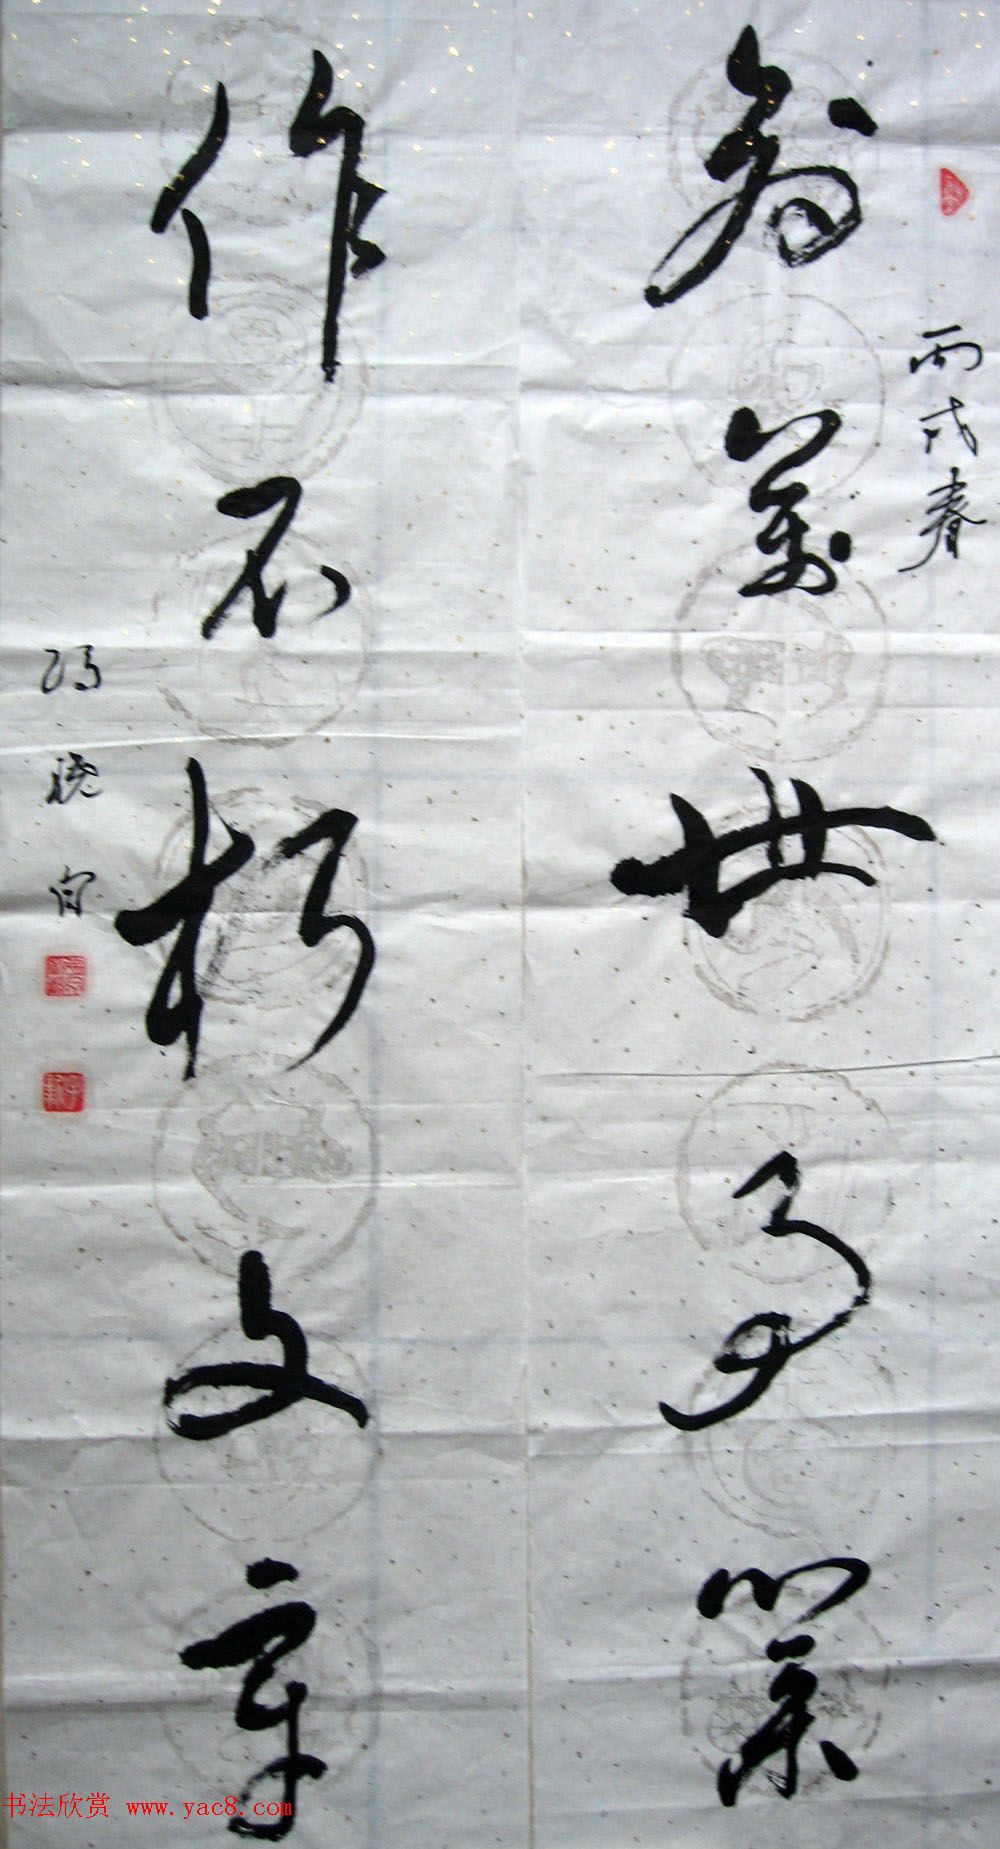 丙戌春
为万世事業
作不朽文章
冯晓白
书法欣赏 www.yac8.com